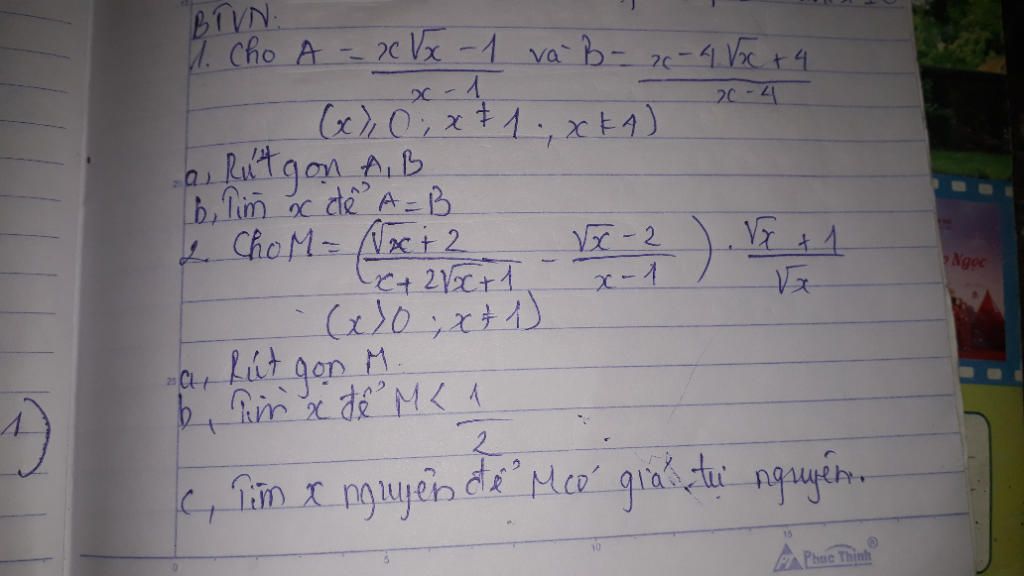 BTVN:
1. Cho A = (x√x - 1)/(x - 1) và B = (x - 4√x + 4)/(x - 4)
(x ⩾ 0 ; x ≠ 1 ; x ≠ 4)
a, Rút gọn A, B
b, Tìm x để A = B
2. Cho M = ((√x + 2)/(x + 2√x + 1) - (√x - 2)/(x - 1)) . (√x + 1)/√x
(x > 0 ; x ≠ 1)
a, Rút gọn M.
b, Tìm x để M < 1/2
c, Tìm x nguyên để M có giá tị nguyên.
1)
Ngọc
0 5 10 15
20
25
Phuc Thịnh®